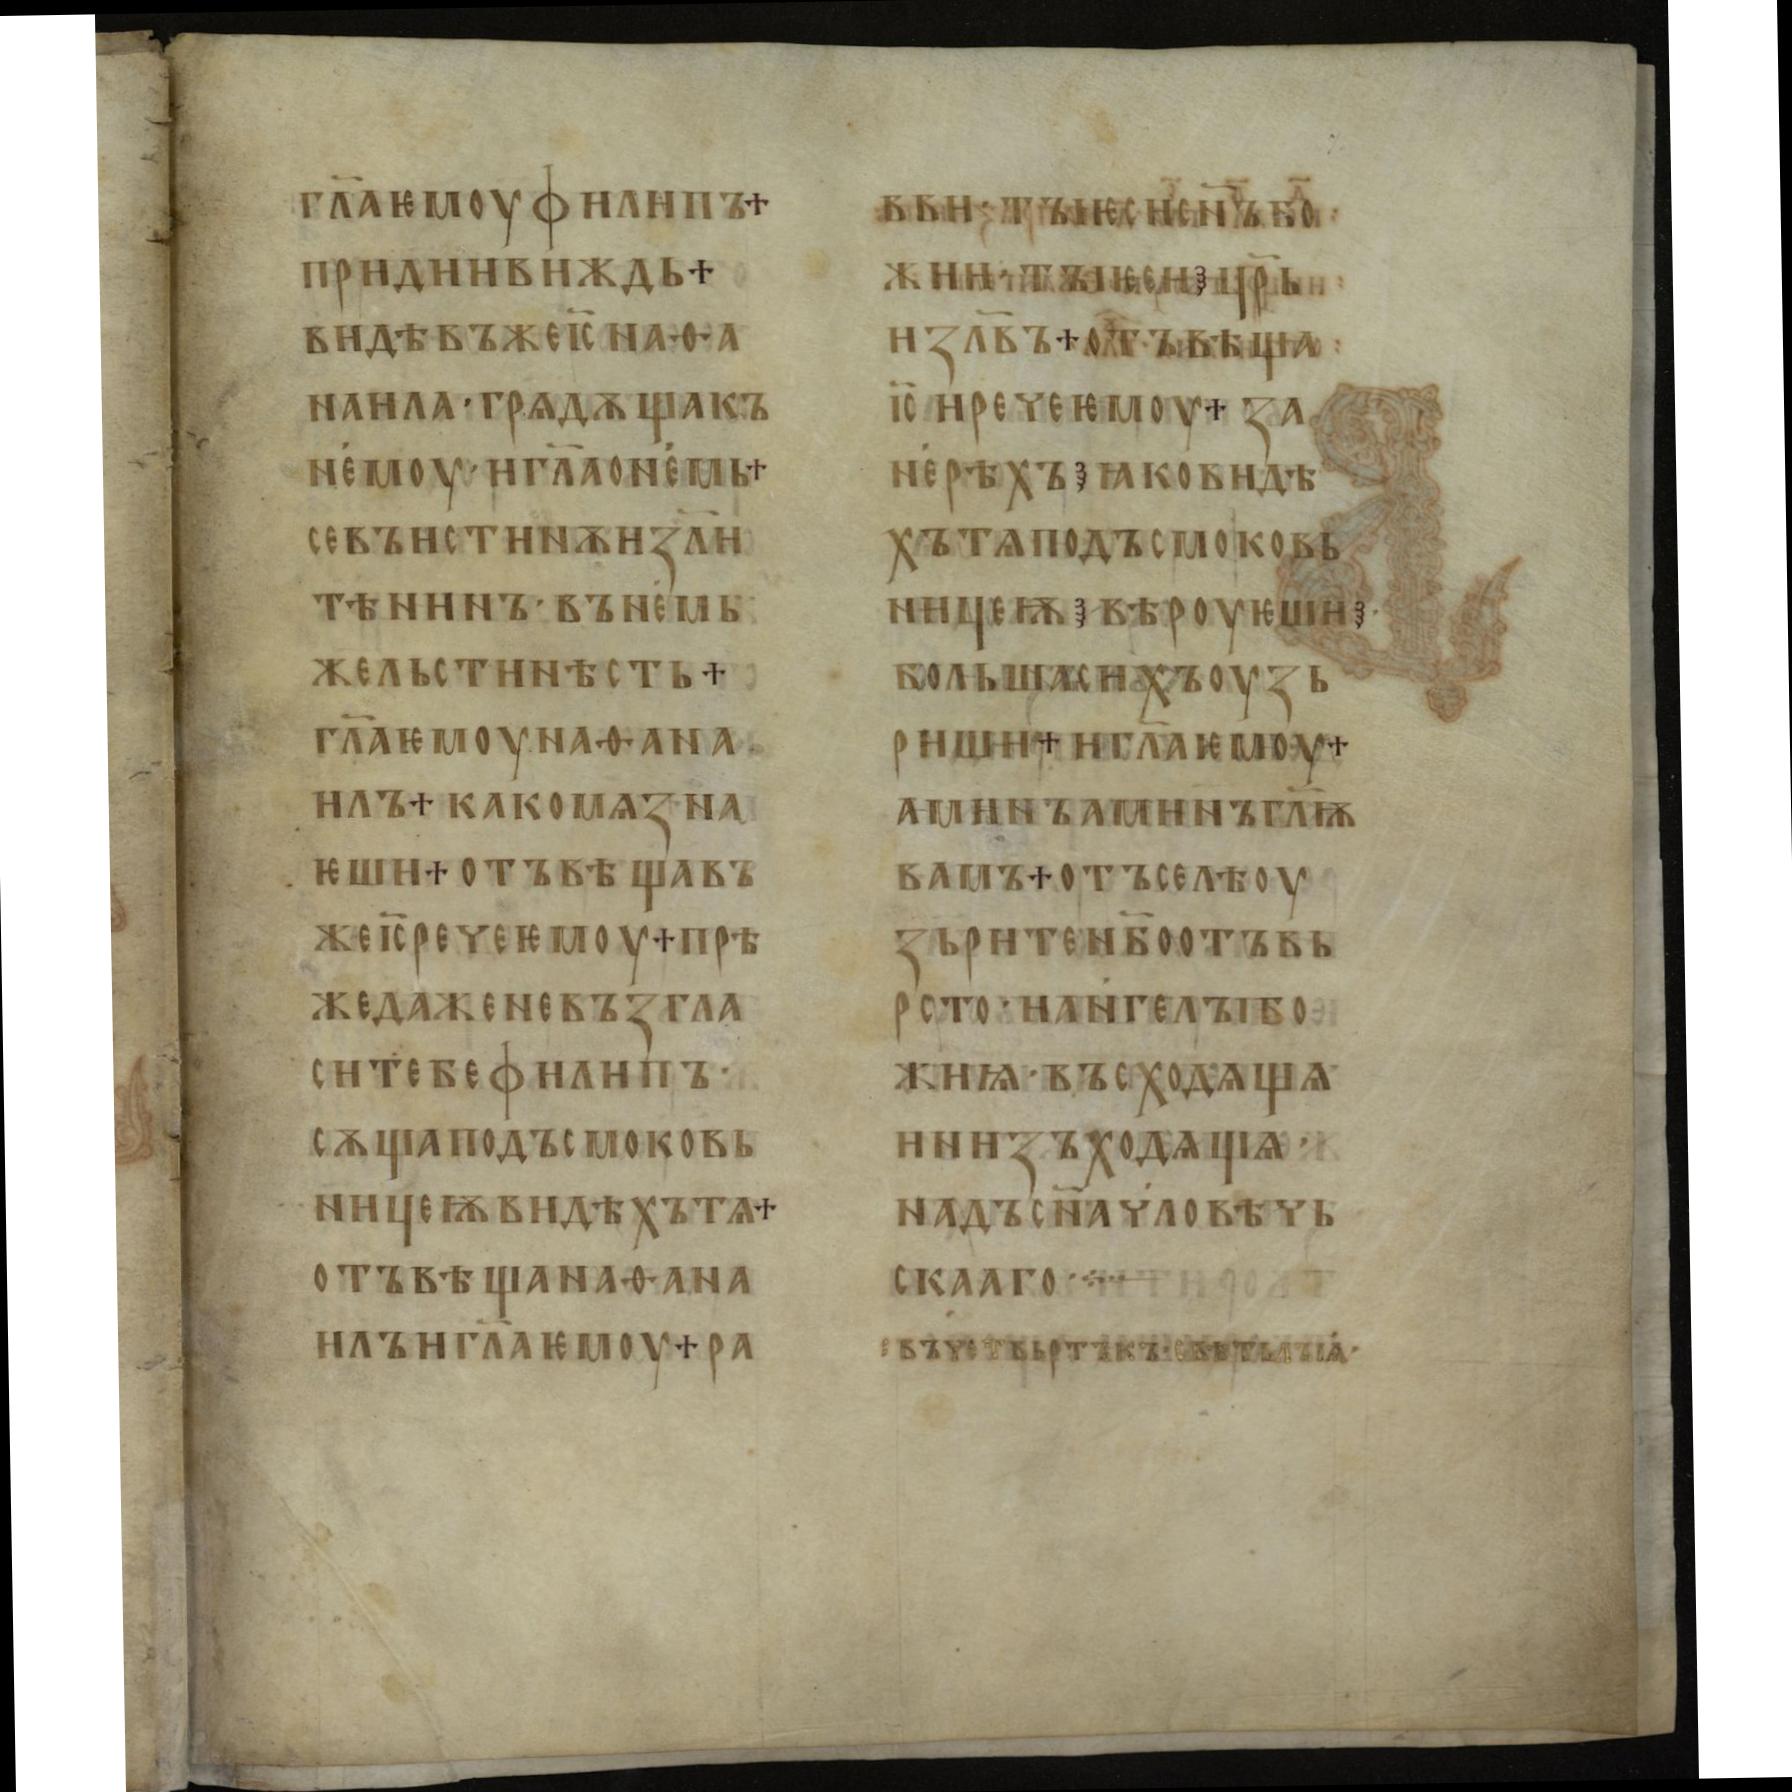 гл҃аѥмоуфилипъ+
придиивиждь+
видѣвъжеіс҃наѳа
наила·грѧдѫщакъ
немоу·игл҃аонемь+
севъистинѫизл҃и
тѣнинъ·въньемь
жельстинѣсть+
гл҃аѥмоунаѳана
илъ+какомѧзна
ѥши+отъвѣщавъ
жеіс҃речеѥмоу+прѣ
жедаженевъзгла
ситебефилипъ·
сѫщаподъсмоковь
ницеѭвидѣхътѧ+
отъвѣщанаѳана
илъигл҃аѥмоу+ра
вви·тъіѥсисн҃ъбо
жии·тъіѥсицр҃ь
изл҃въ+отъвѣща
іс҃иречеѥмоу+за
нерѣхъꙁꙗковидѣ
хътѧподъсмоковь
ницеѭꙁвѣроуѥшиꙁ·
большасихъоузь
риши+игл҃аѥмоу+
аминъаминъгл҃ѭ
вамъ+отъселѣоу
зьритениб҃оотъвь
рсто·иан҃гелъібо
жиꙗ·въсходѧщѧ
инизъходѧщѧ·
надъсн҃ачловѣчь
скааго·:·
въчетвьртъкъ·свѣтьлъіѩ·